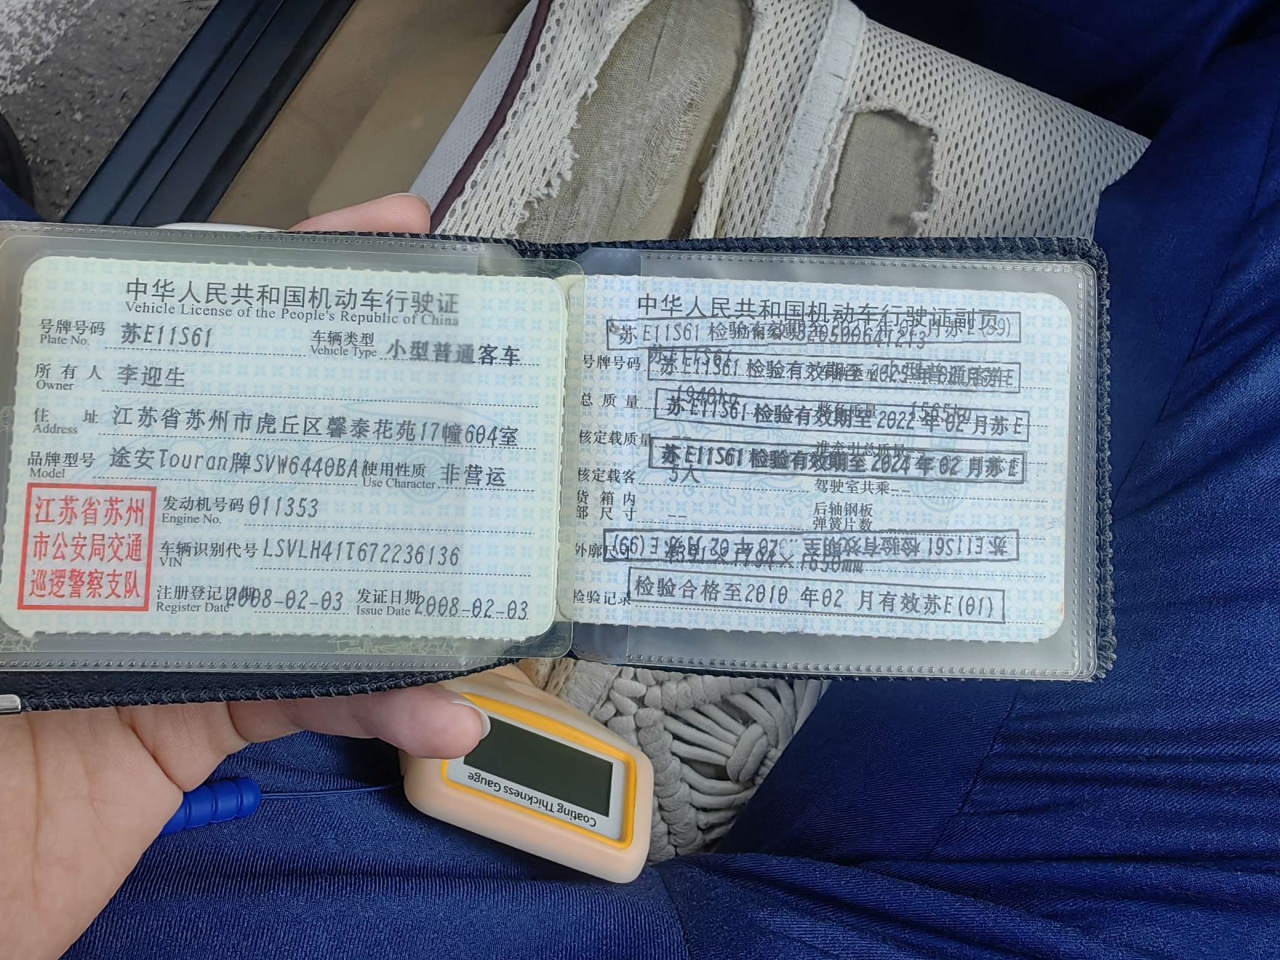 中华人民共和国机动车行驶证
Vehicle License of the People's Republic of China
号牌号码 苏E11S61 车辆类型 小型普通客车
Plate No. Vehicle Type
所有人 李迎生
Owner
住址 江苏省苏州市虎丘区馨泰花苑17幢604室
Address
品牌型号 途安Touran牌SVW6440BA 使用性质 非营运
Model Use Character
江苏省苏州
市公安局交通
巡逻警察支队
发动机号码 011353
Engine No.
车辆识别代号 LSVLH41T672236136
VIN
注册登记日期 2008-02-03 发证日期 2008-02-03
Register Date Issue Date
中华人民共和国机动车行驶证副页
苏E11S61 检验有效期
号牌号码 苏E11S61
苏E11S61 检验有效期至
总质量 1940kg 1565kg
苏E11S61 检验有效期至2022年02月苏E
核定载质量
苏E11S61 检验有效期至2024年02月苏E
核定载客 5人 驾驶室共乘 --
货箱内
部尺寸 --
后轴钢板
弹簧片数
外廓尺
苏E11S61 检验有效期至 年02月苏E(99)
检验记录 检验合格至2010年02月有效苏E(01)
Coating Thickness Gauge